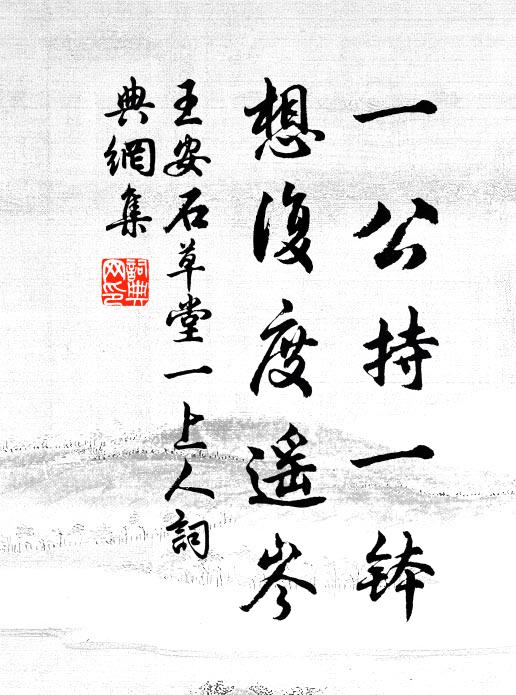 一公持一钵
想復度遥岑
王安石草堂一上人詞
典網集
詞典網印